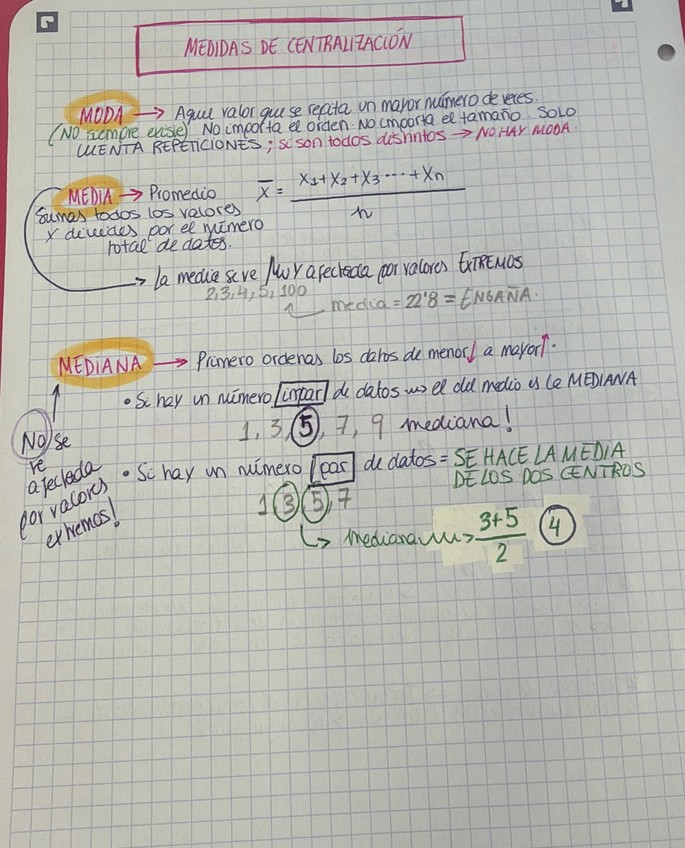 MEDIDAS DE CENTRALIZACIÓN
MODA → Aquel valor que se repita un mayor número de veces.
(NO siempre existe) No importa el orden. No importa el tamaño SOLO
CUENTA REPETICIONES; si son todos distintos → NO HAY MODA.
MEDIA → Promedio x̄ = (x1 + x2 + x3 ... + xn) / n
Sumas todos los valores
y divides por el número
total de datos.
→ La media se ve MUY afectada por valores EXTREMOS
2, 3, 4, 5, 100
media = 22'8 = ENGAÑA.
MEDIANA → Primero ordenas los datos de menor↓ a mayor↑.
• Si hay un número impar de datos → el del medio es la MEDIANA
1, 3, 5, 7, 9 mediana!
No se
ve
afectada
por valores
extremos!
• Si hay un número par de datos = SE HACE LA MEDIA
DE LOS DOS CENTROS
1 3 5, 7
↳ mediana → (3+5) / 2 4